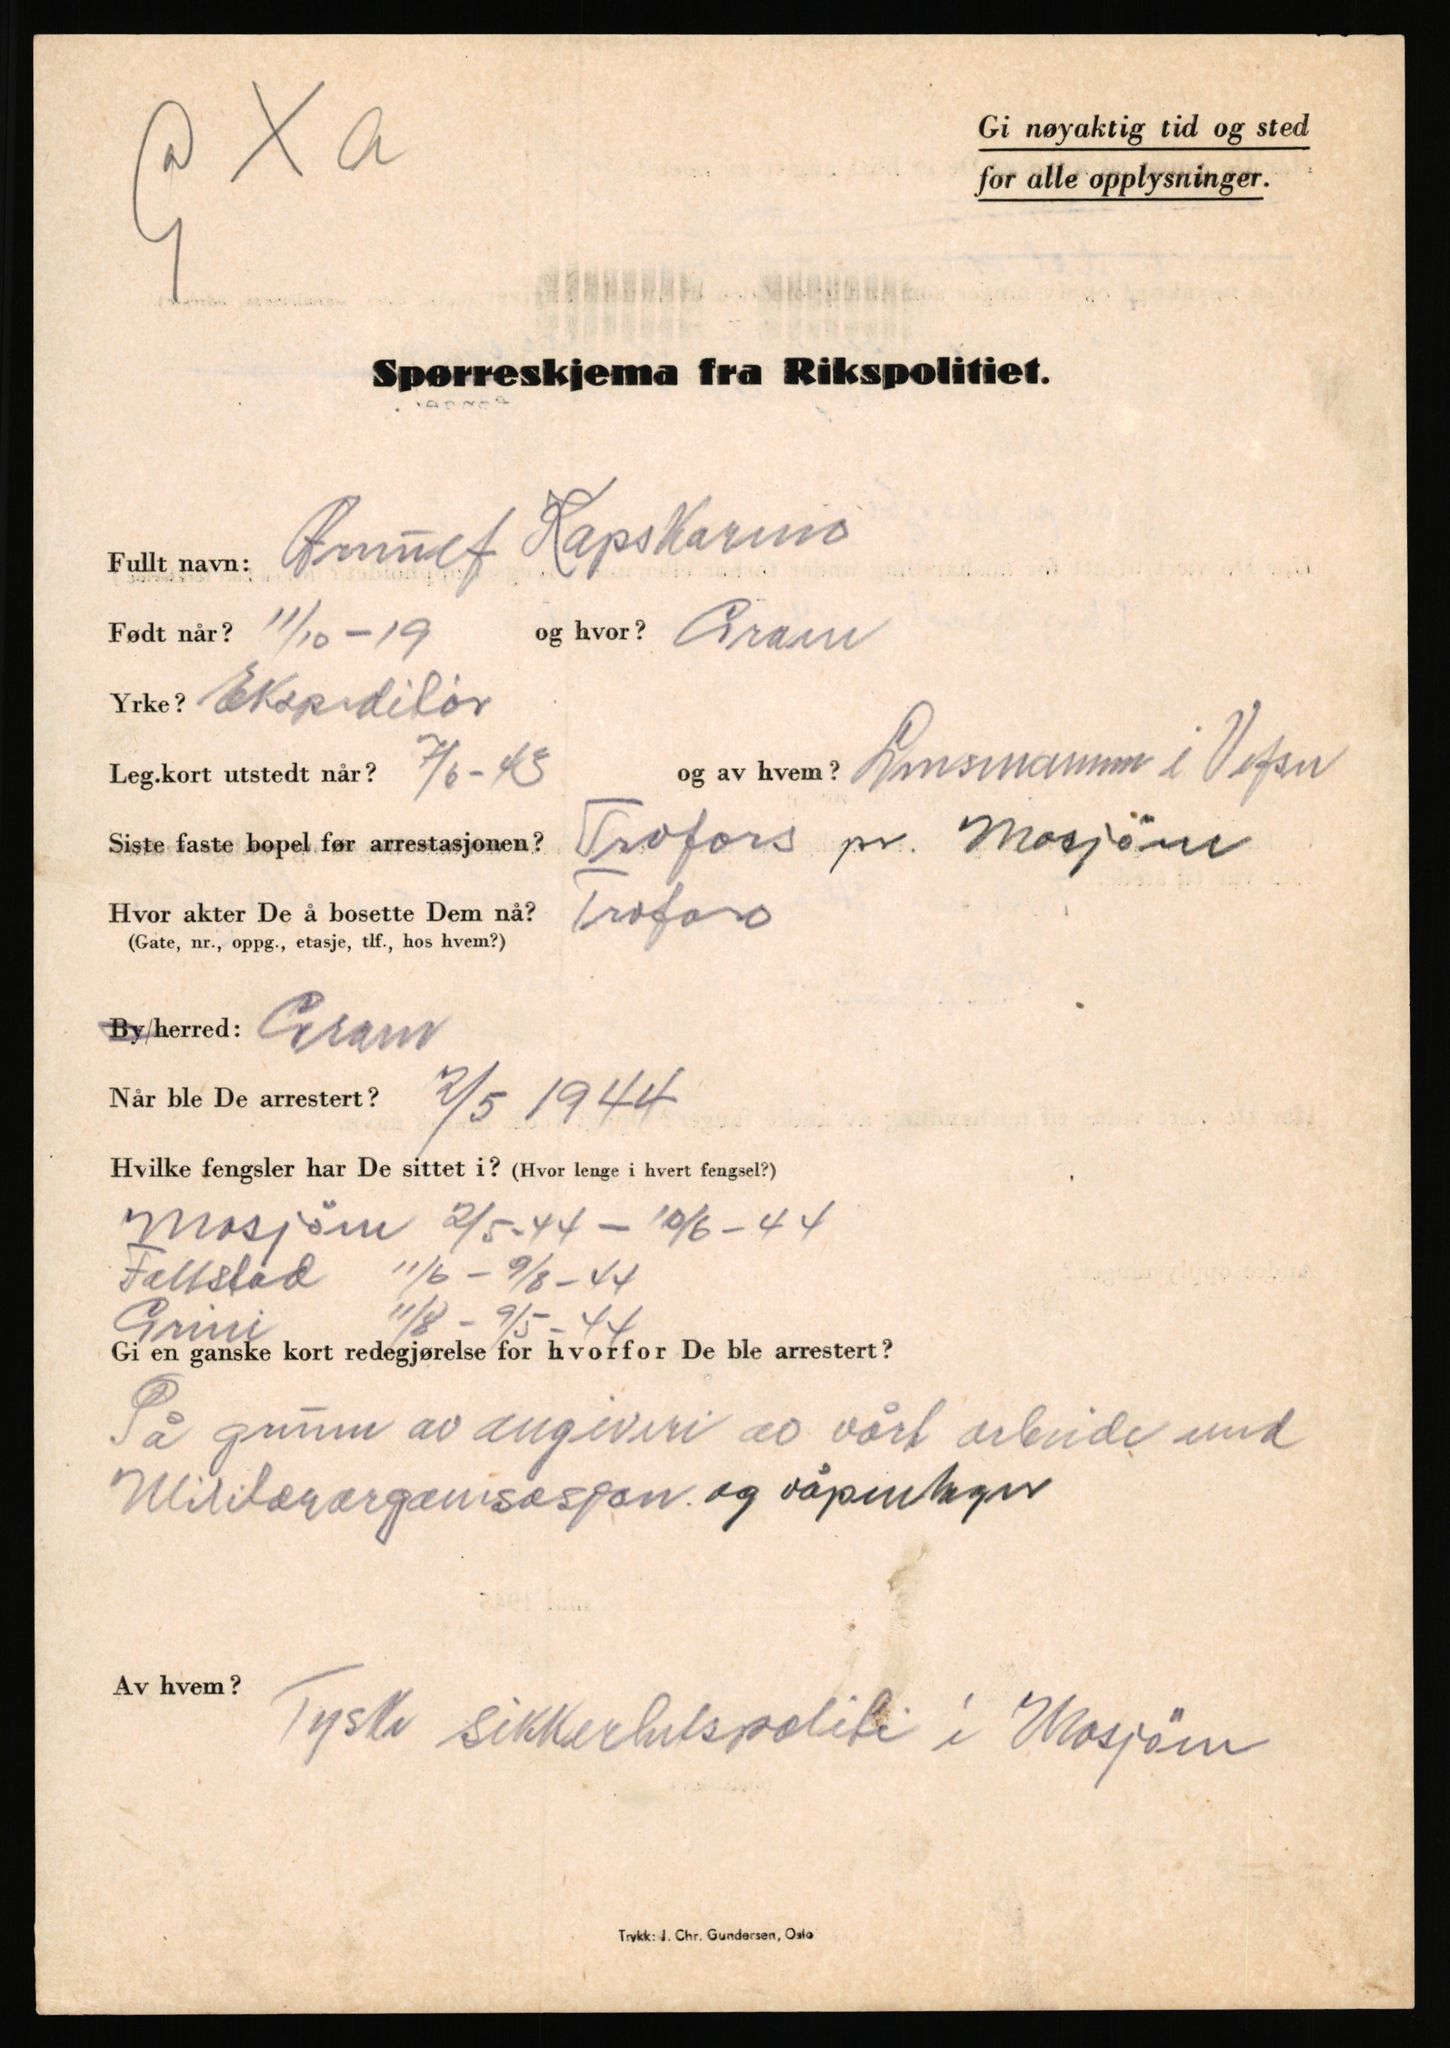 G X a
Gi nøyaktig tid og sted
for alle opplysninger.
Spørreskjema fra Rikspolitiet.
Fullt navn: Kapskarmo
Født når? 11/10-19 og hvor? Grane
Yrke? Ekspeditør
Leg.kort utstedt når? 7/6-43 og av hvem? Lensmannen i Vefsn
Siste faste bopel før arrestasjonen? Trofors pr. Mosjöen
Hvor akter De å bosette Dem nå? Trofors
(Gate, nr., oppg., etasje, tlf., hos hvem?)
By/herred: Grane
Når ble De arrestert? 2/5 1944
Hvilke fengsler har De sittet i? (Hvor lenge i hvert fengsel?)
Mosjöen 2/5-44 - 10/6-44
Falstad 11/6 - 9/8-44
Grini 11/8 - 9/5-44
Gi en ganske kort redegjørelse for hvorfor De ble arrestert?
På grunn av angiveri av vårt arbeide med
Militærorganisasjon. og våpenlager
Av hvem?
Tyske sikkerhetspoliti i Mosjöen
Trykk: J. Chr. Gundersen, Oslo